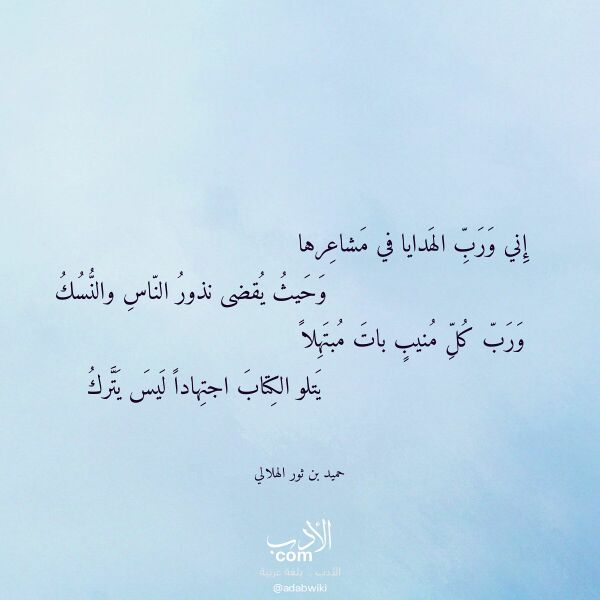 إِني وَرَبِّ الهَدايا في مَشاعِرها
وَحَيثُ يُقضى نذورُ النّاسِ والنُّسُكُ
وَرَبّ كُلِّ مُنيبٍ باتَ مُبتَهِلاً
يَتلو الكِتابَ اجتِهاداً لَيسَ يَتَّركُ
حميد بن ثور الهلالي
الأدب
com
الأدب .. بلغة عربية
@adabwiki